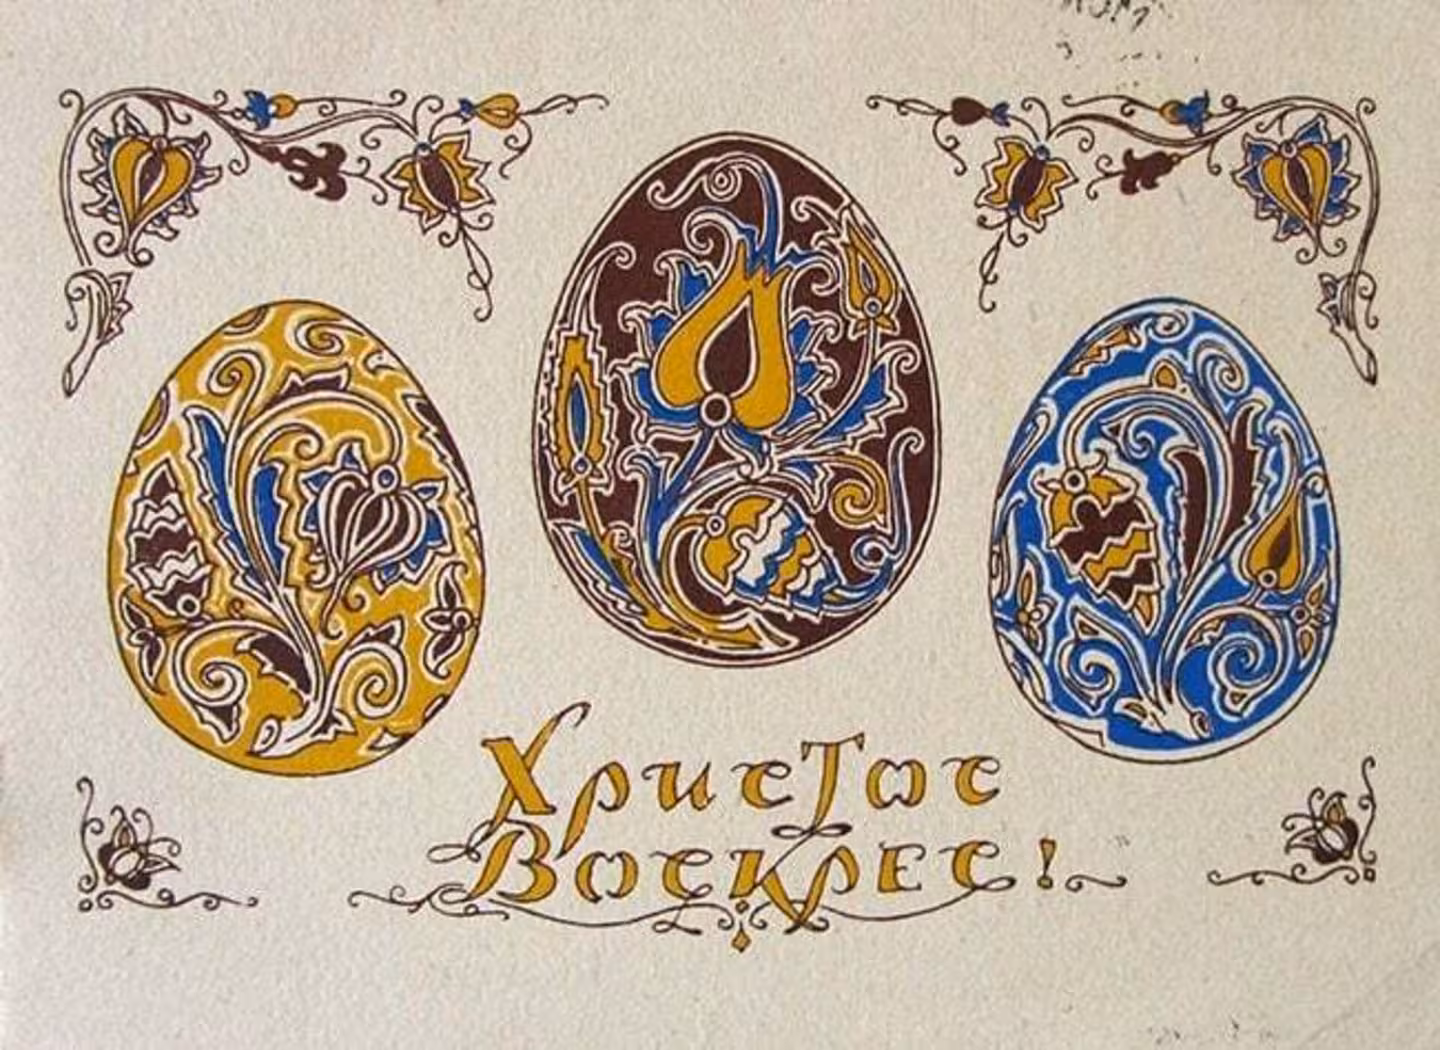 Христѡс
Воскрес!